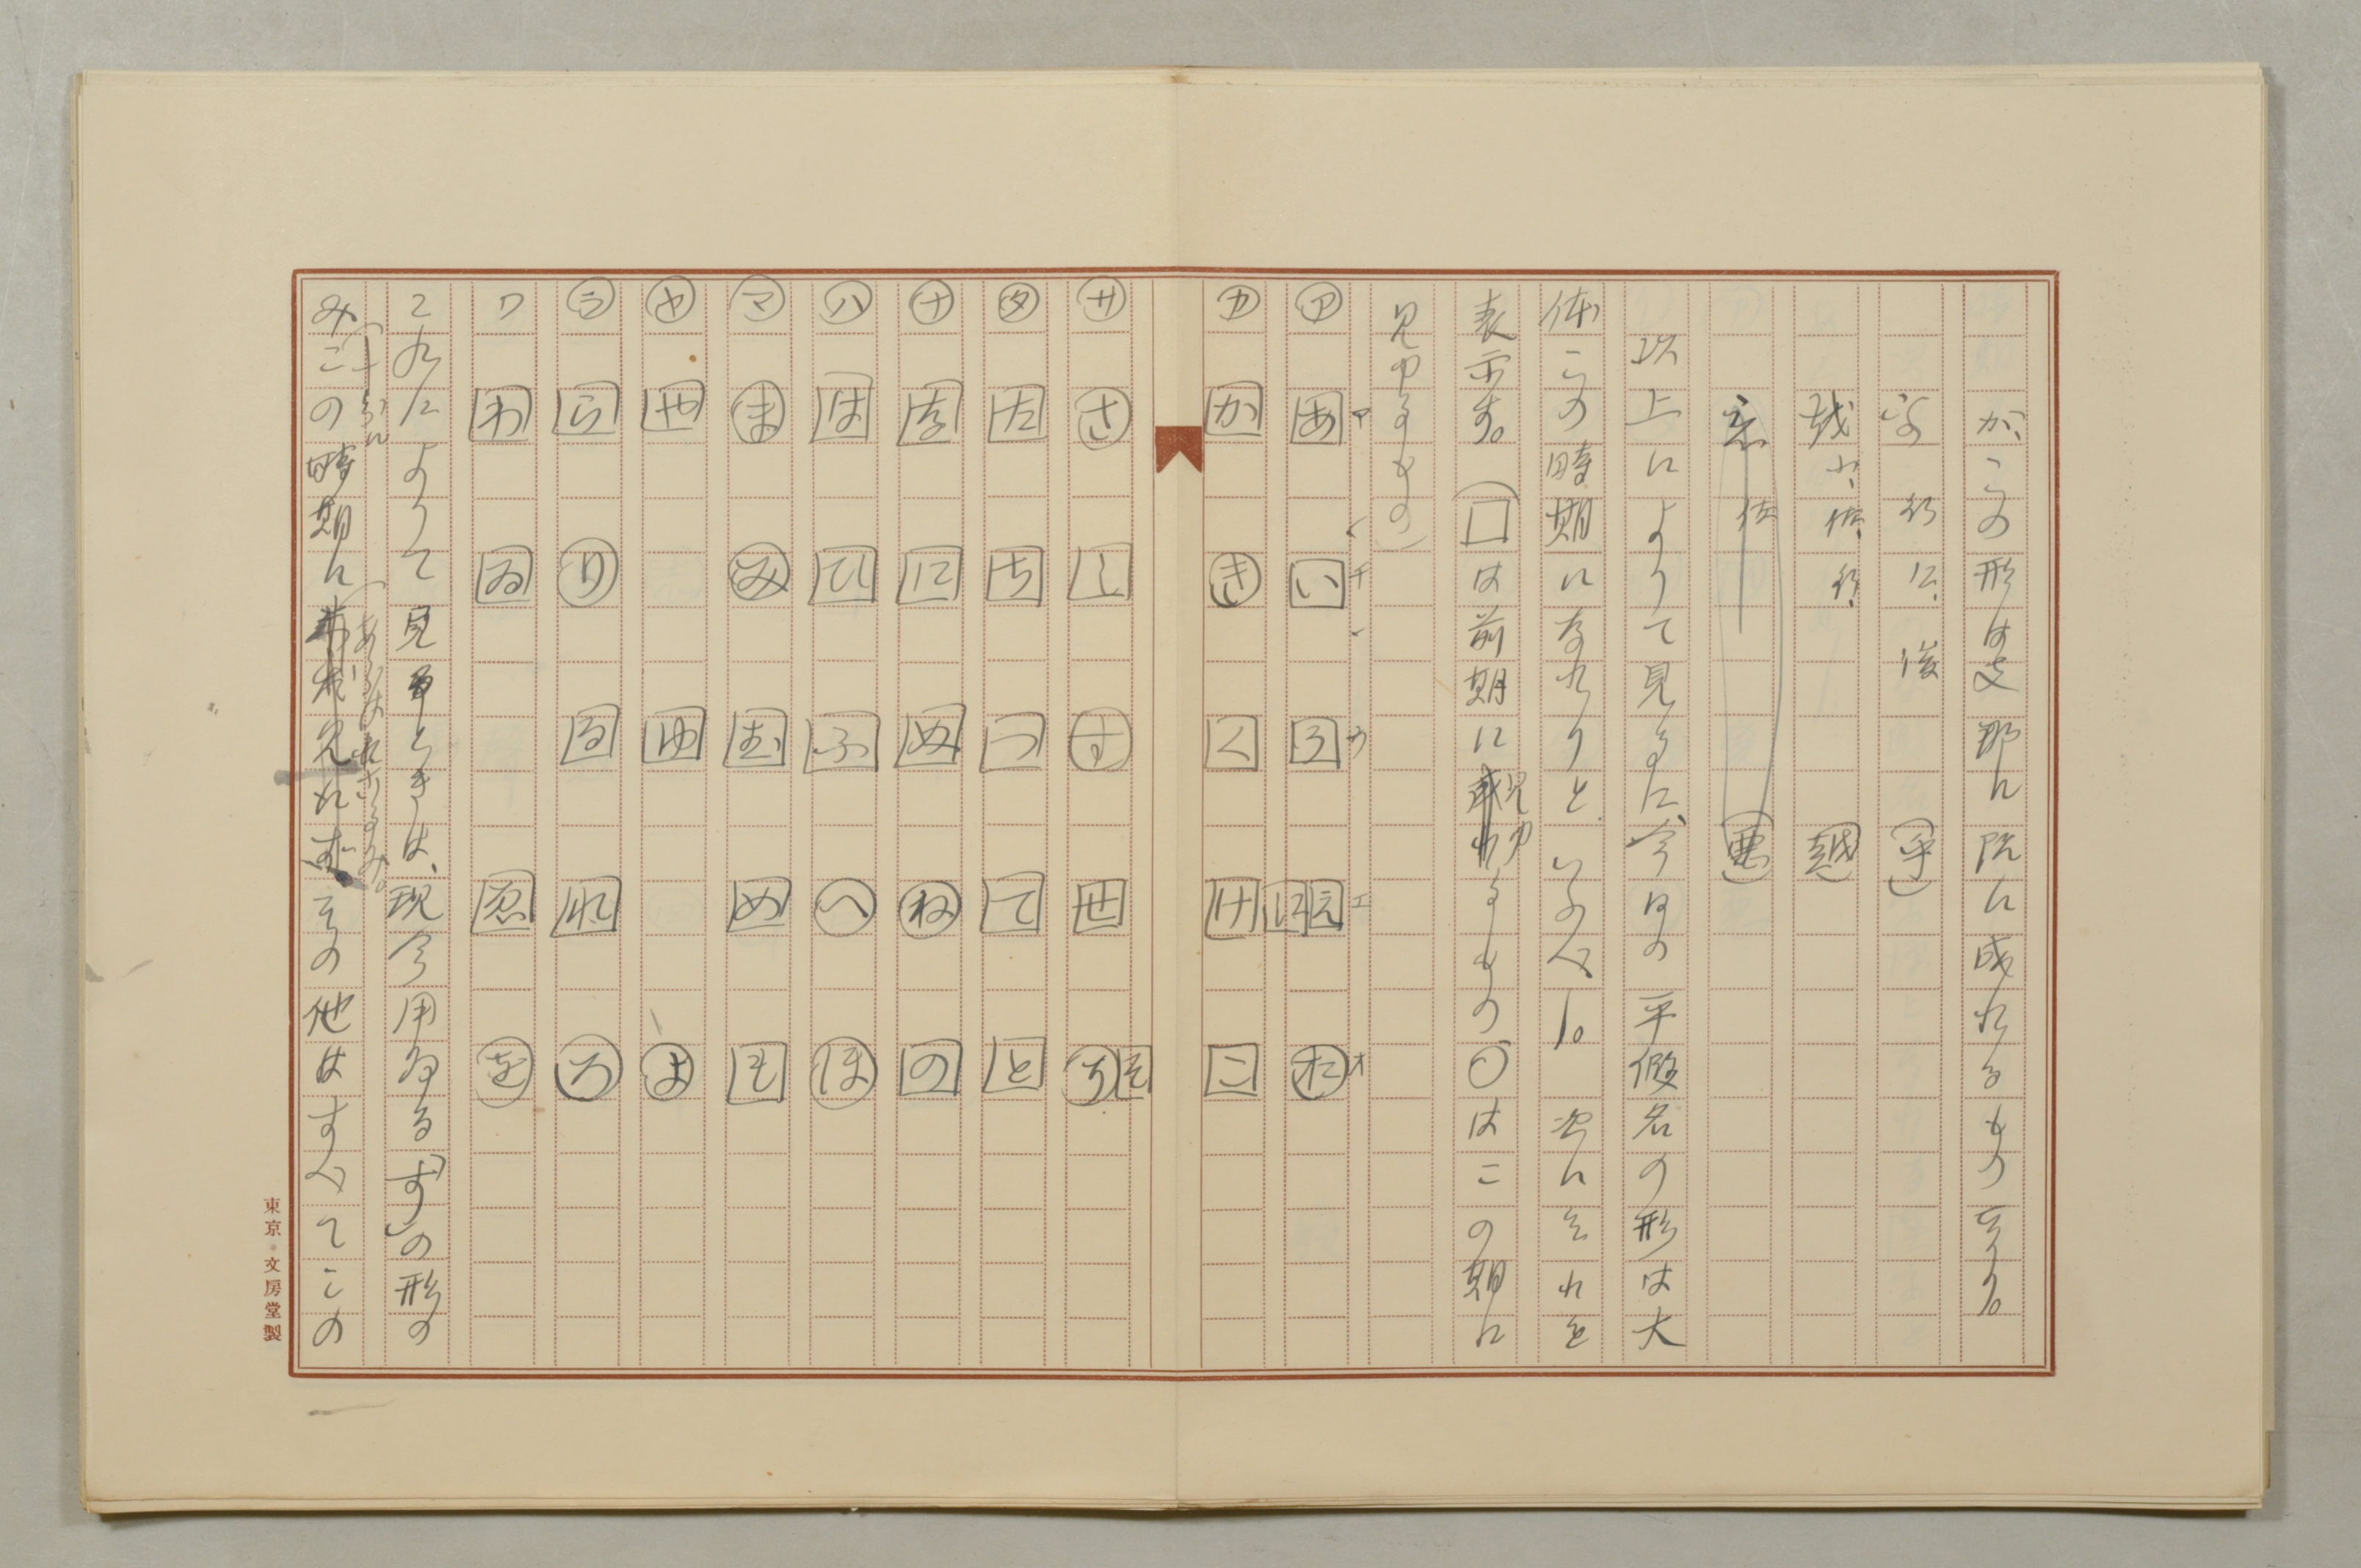 がこの形は支那に既に成れるものなり。
行、仁、後
越 小、佐、行、 (越)
佐 (悪)
以上によりて見るに、今日の平假名の形は大
体この時期になれりといふべし。次にそれを
表示す。(□は前期に現ゆるもの○はこの期に
見ゆるもの)
ア あ い う え お
カ か き く け こ
サ さ し す せ そ
タ た ち つ て と
ナ な に ぬ ね の
ハ は ひ ふ へ ほ
マ ま み む め も
ヤ や ゆ よ
ラ ら り る れ ろ
ワ わ ゐ ゑ を
これによりて見るときは、現今用ゐる「す」の形の
みこの時期に
その他はすべてこの
東京・文房堂製